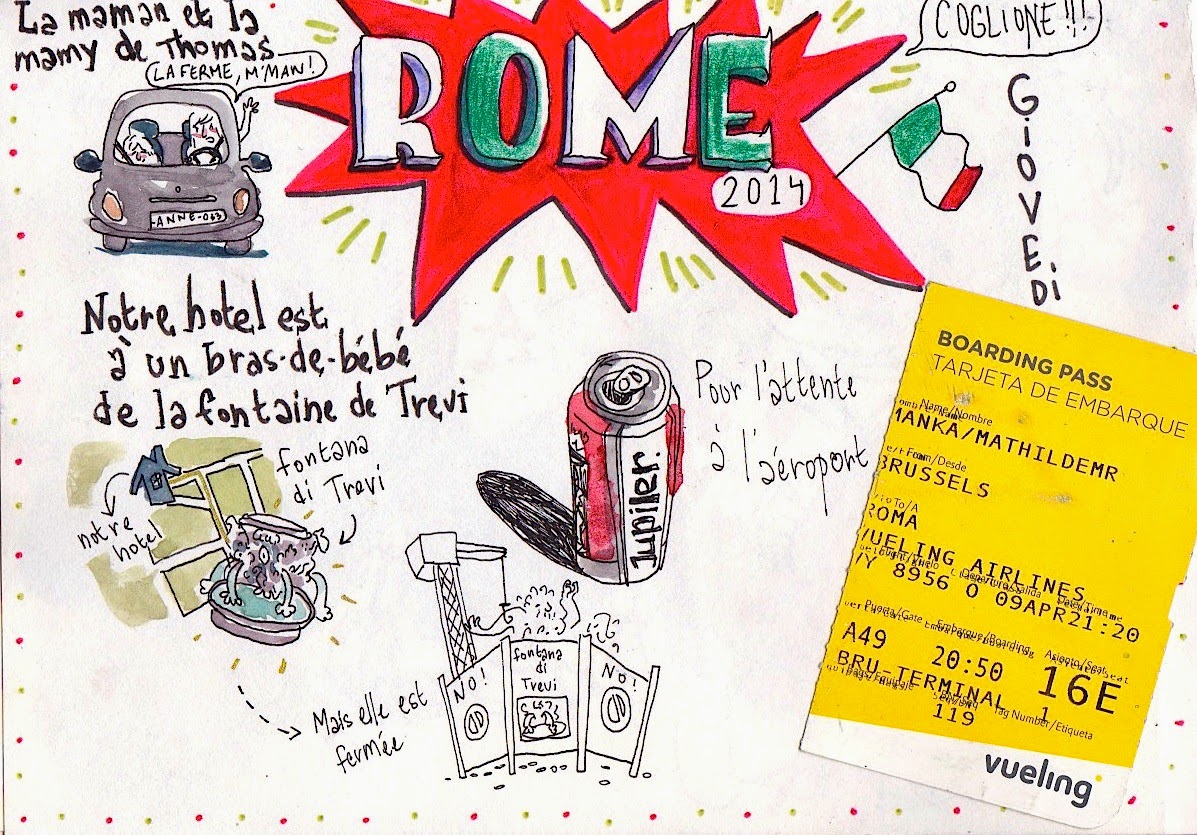 La maman et la
mamy de Thomas
LA FERME, M'MAN!
ANNE-063
ROME
2014
COGLIONE!!!
GIOVEDI
Notre hotel est
à un bras-de-bébé
de la fontaine de Trevi
notre
hotel
fontana
di Trevi
Jupiler
Pour l'attente
à l'aéroport
Mais elle est
fermée
NO!
fontana
di
Trevi
NO!
BOARDING PASS
TARJETA DE EMBARQUE
Name/Nombre
MANKA/MATHILDEMR
From/Desde
BRUSSELS
To/A
ROMA
VUELING AIRLINES
VY 8956 O 09APR21:20
Puerta/Gate Embarque/Boarding Asiento/Seat
A49 20:50 16E
BRU-TERMINAL 1
119
Tag Number/Etiqueta
vueling